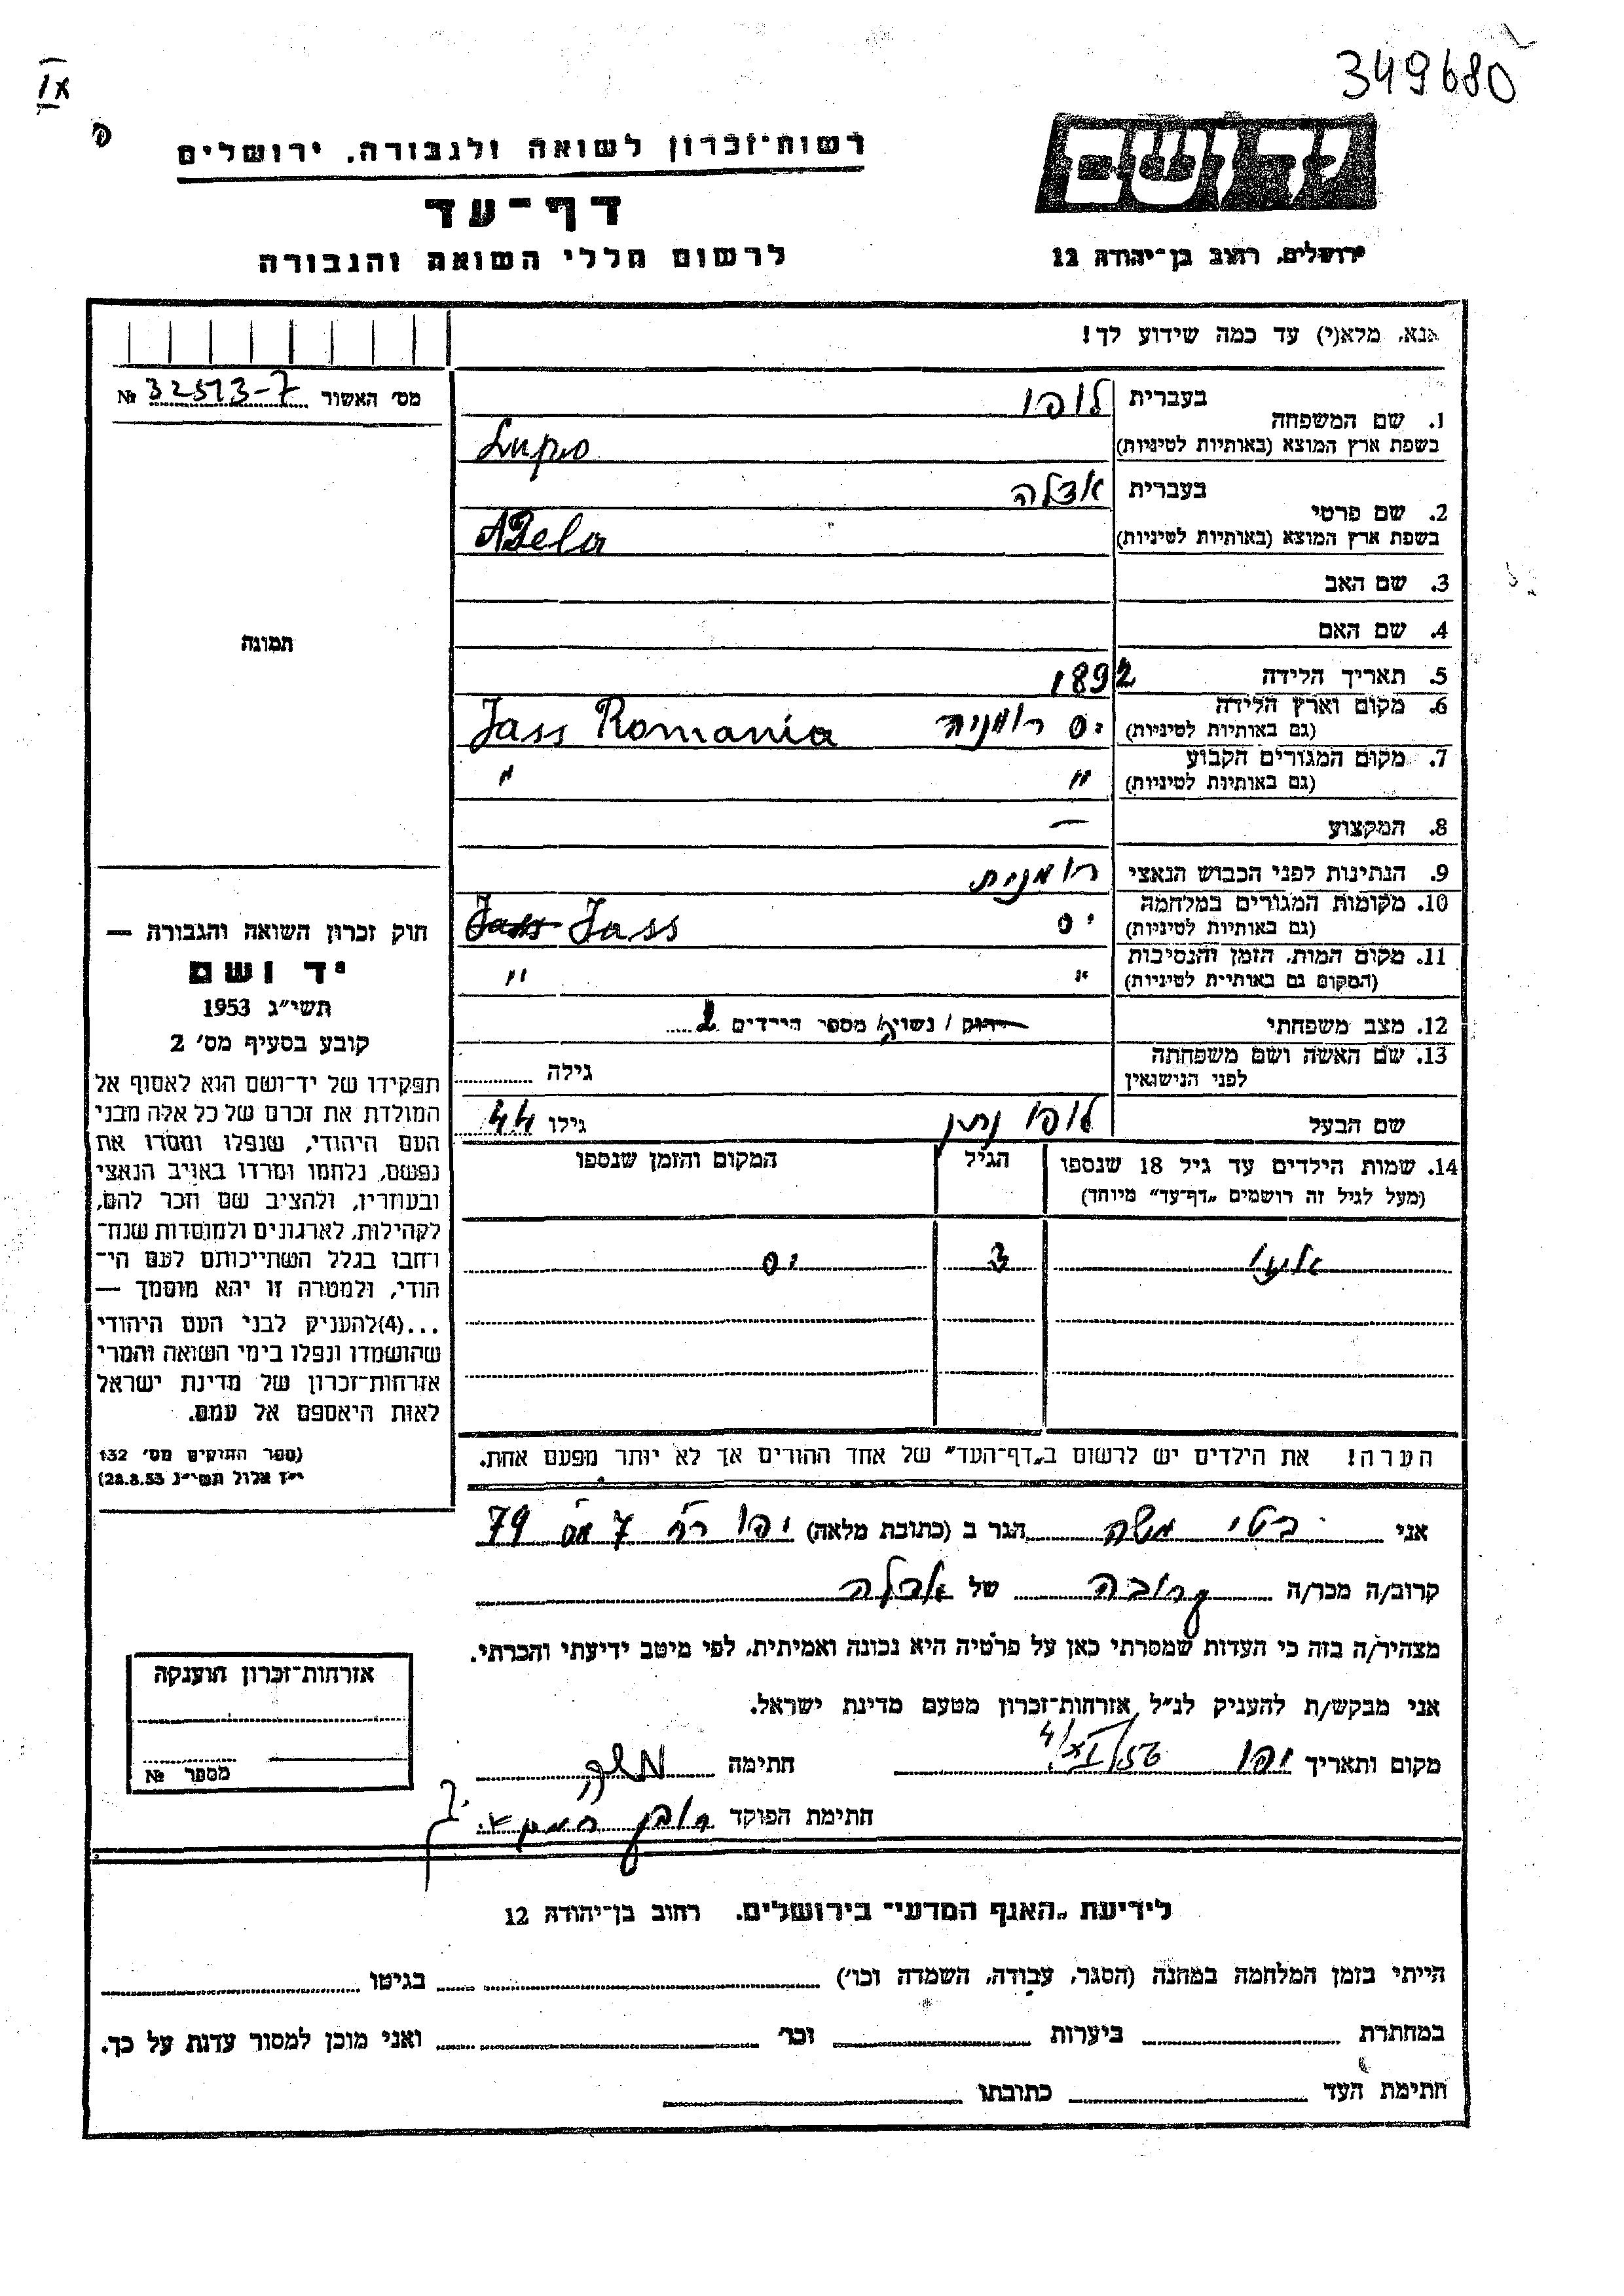 349680
IX
רשות־זכרון לשואה ולגבורה, ירושלים
דף־עד
לרשום חללי השואה והגבורה
יד ושם
ירושלים, רחוב בן־יהודה 12
אנא, מלא(י) עד כמה שידוע לך!
מס' האשור 32513-7 №
1. שם המשפחה
בעברית לופו
בשפת ארץ המוצא (באותיות לטיניות) Lupo
2. שם פרטי
בעברית אדלה
בשפת ארץ המוצא (באותיות לטיניות) Adela
3. שם האב
4. שם האם
5. תאריך הלידה 1892
6. מקום וארץ הלידה
(גם באותיות לטיניות) יס רומניה Jass Romania
7. מקום המגורים הקבוע
(גם באותיות לטיניות) " "
8. המקצוע —
9. הנתינות לפני הכבוש הנאצי רומנית
10. מקומות המגורים במלחמה
(גם באותיות לטיניות) יס Jass Jass
11. מקום המות, הזמן והנסיבות
(המקום גם באותיות לטיניות) " "
12. מצב משפחתי רוק / נשויה / מספר הילדים
13. שם האשה ושם משפחתה
לפני הנישואין גילה
שם הבעל לופו נתן גילו 44
14. שמות הילדים עד גיל 18 שנספו
(מעל לגיל זה רושמים „דף־עד" מיוחד)
הגיל
המקום והזמן שנספו
3 יס
הערה! את הילדים יש לרשום ב„דף־העד" של אחד ההורים אך לא יותר מפעם אחת.
תמונה
חוק זכרון השואה והגבורה —
יד ושם
תשי"ג 1953
קובע בסעיף מס' 2
תפקידו של יד־ושם הוא לאסוף אל
המולדת את זכרם של כל אלה מבני
העם היהודי, שנפלו ומסרו את
נפשם, נלחמו ומרדו באויב הנאצי
ובעוזריו, ולהציב שם וזכר להם,
לקהילות, לארגונים ולמוסדות שנח־
רבו בגלל השתייכותם לעם הי־
הודי, ולמטרה זו יהא מוסמך —
...(4)להעניק לבני העם היהודי
שהושמדו ונפלו בימי השואה והמרי
אזרחות־זכרון של מדינת ישראל
לאות היאספם אל עמם.
(ספר החוקים מס' 132
י"ז אלול תשי"ג 28.8.53)
אני משה הגר ב (כתובת מלאה) יפו רח' 7 מס 79
קרוב/ה מכר/ה קרובה של אדלה
מצהיר/ה בזה כי העדות שמסרתי כאן על פרטיה היא נכונה ואמיתית, לפי מיטב ידיעתי והכרתי.
אני מבקש/ת להעניק לנ"ל אזרחות־זכרון מטעם מדינת ישראל.
מקום ותאריך יפו 4/XI/56 חתימה משה
חתימת הפוקד ראובן
אזרחות־זכרון הוענקה
מספר №
לידיעת „האגף המדעי" בירושלים, רחוב בן־יהודה 12
הייתי בזמן המלחמה במחנה (הסגר, עבודה, השמדה וכו') בגיטו
במחתרת ביערות וכו' ואני מוכן למסור עדות על כך.
חתימת העד כתובתו